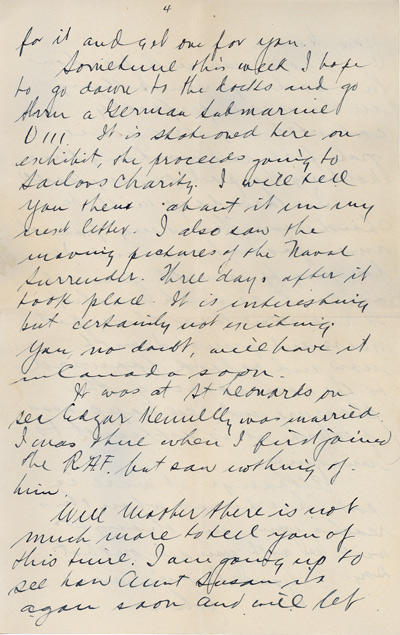 4
for it and get one for you.
Sometime this week I hope
to go down to the docks and go
thru a German Submarine
U111. It is stationed here on
exhibit, the proceeds going to
Sailors Charity. I will tell
you then about it in my
next letter. I also saw the
moving pictures of the Naval
Surrender. Three days after it
took place. It is interesting
but certainly not exciting.
You, no doubt, will have it
in Canada soon.
It was at St Leonards on
sea Edgar Kennelly was married.
I was there when I first joined
the RAF, but saw nothing of
him.
Well Mother there is not
much more to tell you of
this time. I am going up to
see how Aunt Susan is
again soon and will let